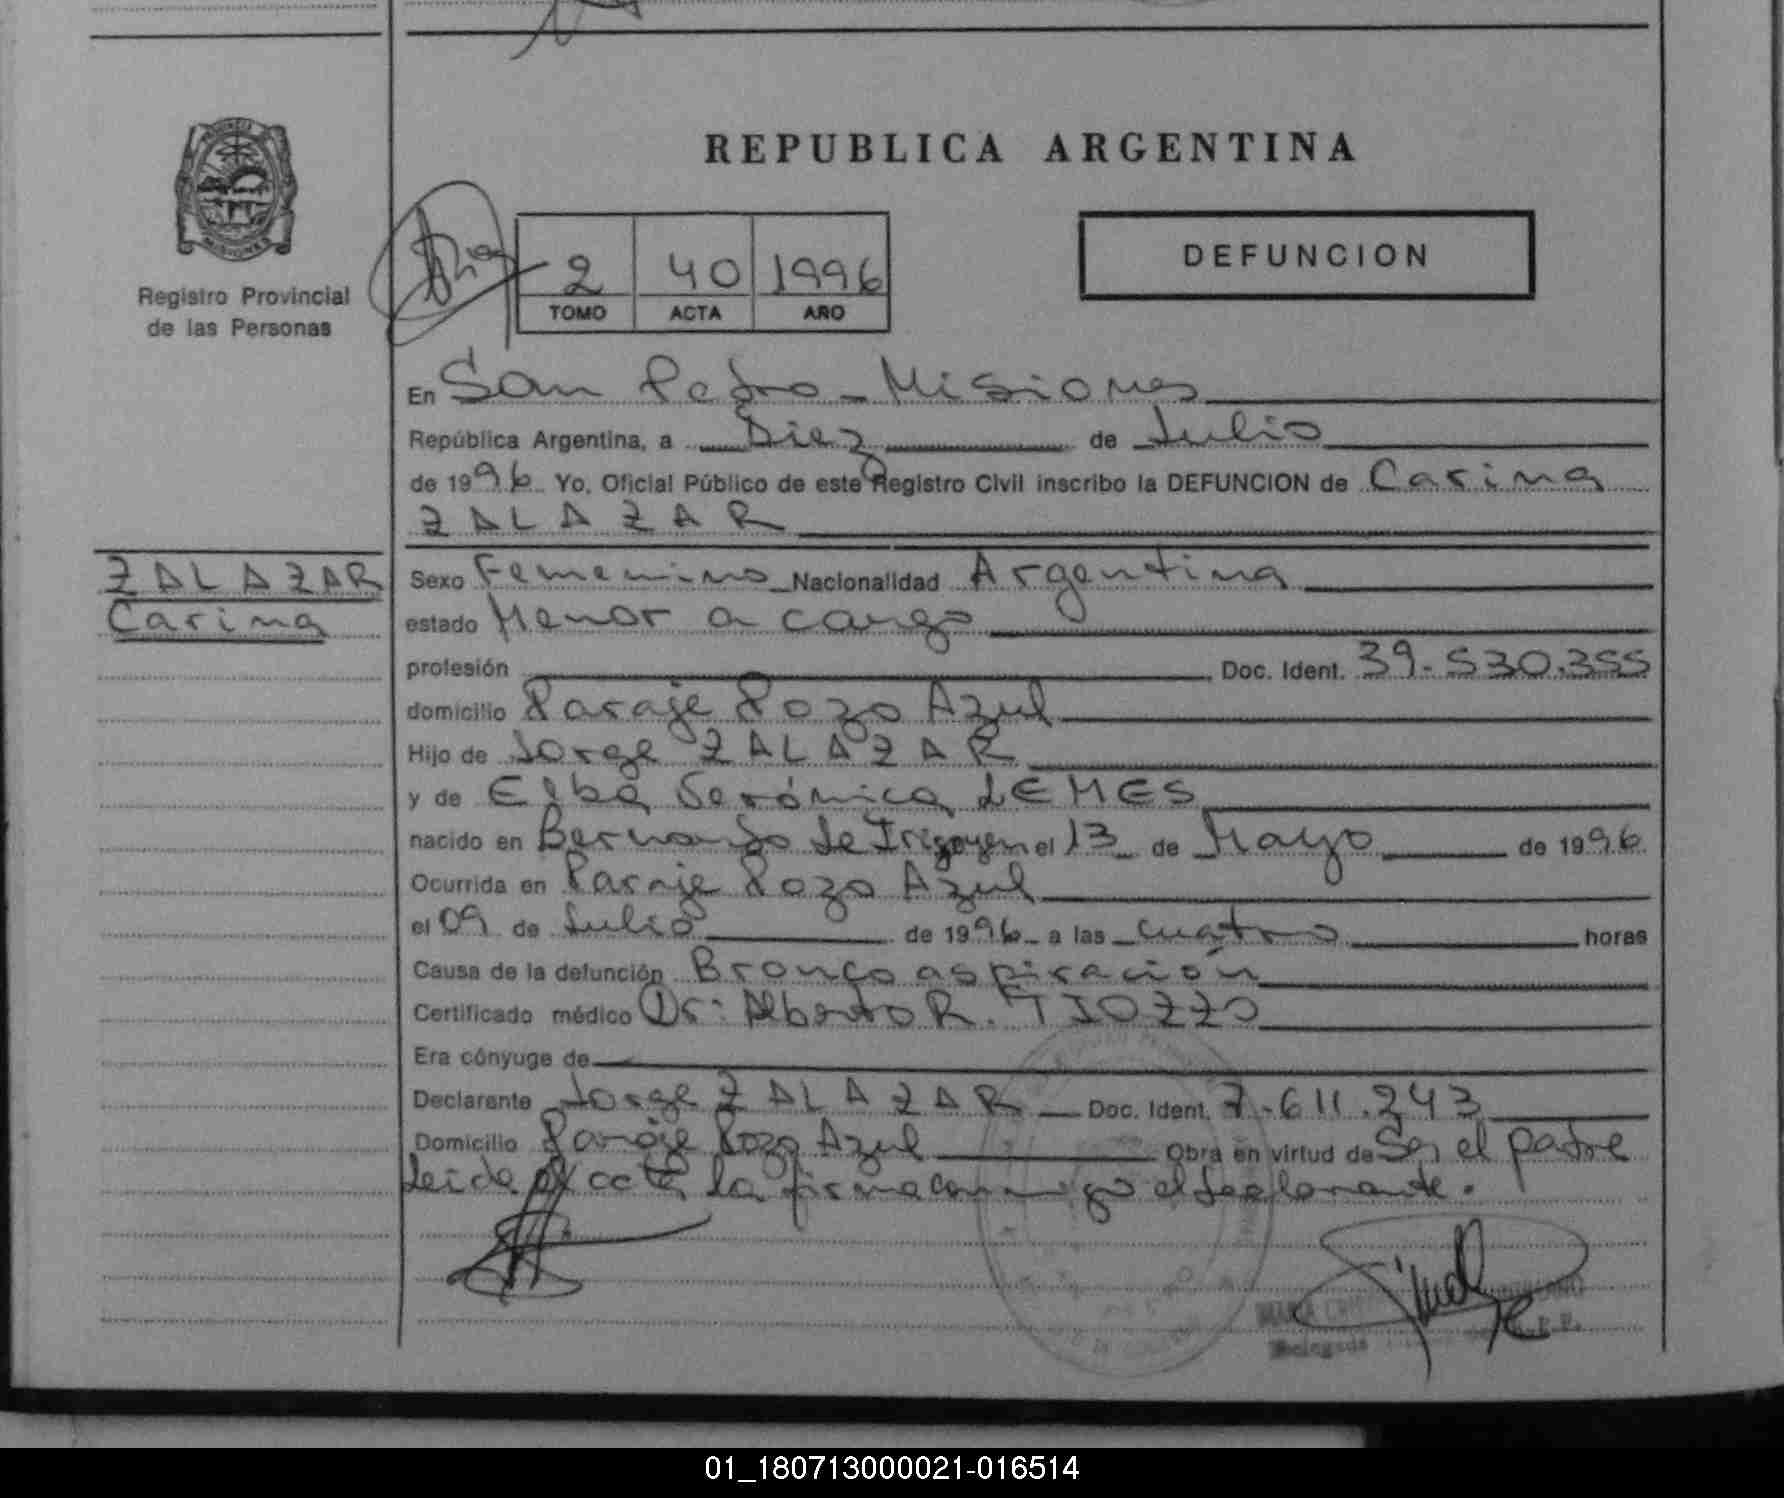 REPUBLICA ARGENTINA
DEFUNCION
PROVINCIA
MISIONES
Registro Provincial
de las Personas
2 40 1996
TOMO ACTA AÑO
En San Pedro - Misiones
República Argentina, a Diez de Julio
de 1996. Yo, Oficial Público de este Registro Civil inscribo la DEFUNCION de Carina
ZALAZAR
ZALAZAR
Carina
Sexo Femenino Nacionalidad Argentina
estado Menor a cargo
profesión Doc. Ident. 39.530.355
domicilio Paraje Pozo Azul
Hijo de Jorge ZALAZAR
y de Elba Verónica LEMES
nacido en Bernardo de Irigoyen el 13 de Mayo de 1996
Ocurrida en Paraje Pozo Azul
el 09 de Julio de 1996 a las cuatro horas
Causa de la defunción Bronco aspiración
Certificado médico Dr: Alberto R. TIOZZO
Era cónyuge de
Declarante Jorge ZALAZAR Doc. Ident. 7.611.243
Domicilio Paraje Pozo Azul Obra en virtud de Ser el padre
Leida el acta, la firma conmigo el declarante.
Delegada
01_180713000021-016514